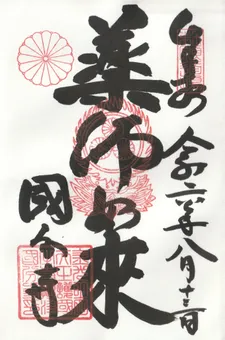 奉拝 令和六年八月十三日
薬師如来
國分寺